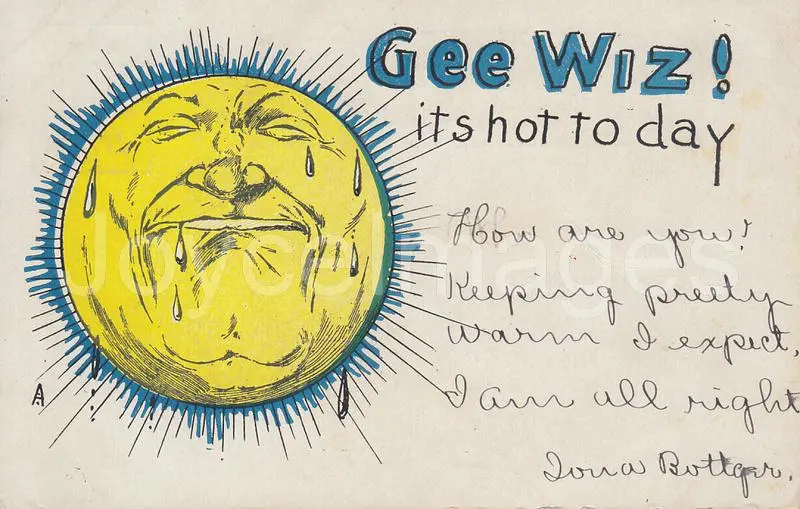 Gee Wiz!
its hot to day
How are you?
Keeping preety
warm I expect,
I am all right
Iona Bottger.
A
JoyceImages